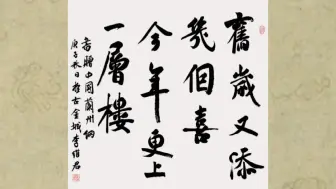 舊歲又添
幾個喜
今年更上
一層樓
書贈中国蘭州網
庚子日於古金城李維君